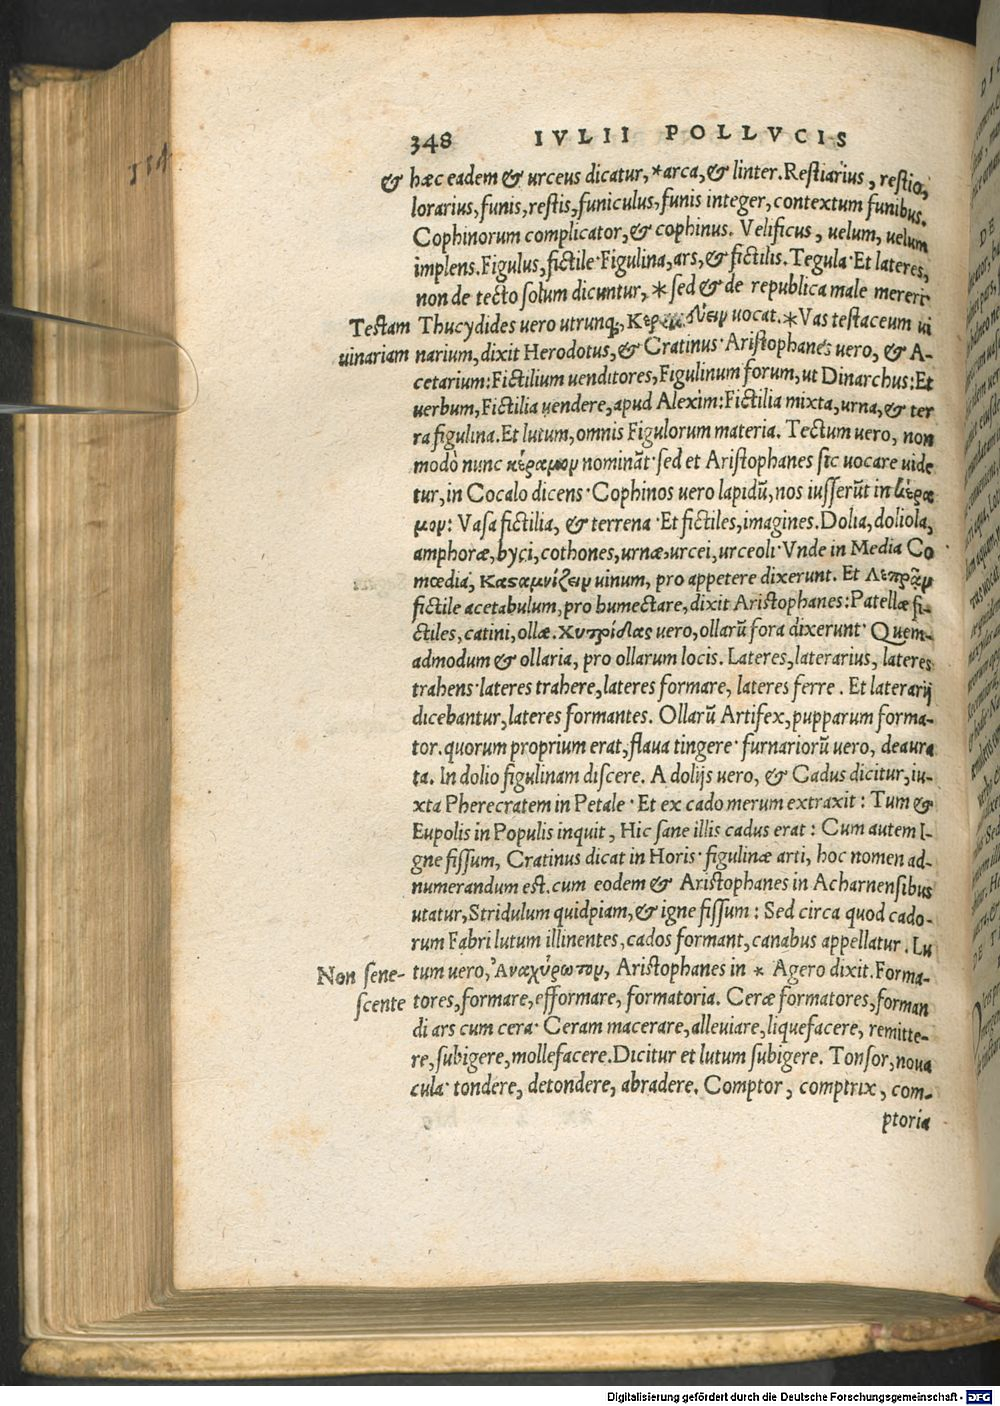 114
348 IVLII POLLVCIS
& hæc eadem & urceus dicatur, *arca, & linter. Restiarius, restio,
lorarius, funis, restis, funiculus, funis integer, contextum funibus.
Cophinorum complicator, & cophinus. Velificus, uelum, uelum
implens. Figulus, fictile· Figulina, ars, & fictilis. Tegula· Et lateres,
non de tecto solum dicuntur, * sed & de republica male mereri·
Testam Thucydides uero utrunq;, uocat. *Vas testaceum ui
uinariam narium, dixit Herodotus, & Cratinus· Aristophanes uero, & A-
cetarium: Fictilium uenditores, Figulinum forum, ut Dinarchus: Et
uerbum, Fictilia uendere, apud Alexim: Fictilia mixta, urna, & ter
ra figulina. Et lutum, omnis Figulorum materia. Tectum uero, non
modò nunc κέραμον nominãt· sed et Aristophanes sic uocare uide
tur, in Cocalo dicens· Cophinos uero lapidũ, nos iusserũt in κέρα
μον: Vasa fictilia, & terrena· Et fictiles, imagines. Dolia, doliola,
amphoræ, byci, cothones, urnæ, urcei, urceoli· Vnde in Media Co
mœdia, Καταμνίζειν uinum, pro appetere dixerunt. Et Λεπρᾶν
fictile acetabulum, pro humectare, dixit Aristophanes: Patellæ fi-
ctiles, catini, ollæ. Χυτρίδας uero, ollarũ fora dixerunt· Quem-
admodum & ollaria, pro ollarum locis. Lateres, laterarius, lateres
trahens· lateres trahere, lateres formare, lateres ferre. Et laterarij
dicebantur, lateres formantes. Ollarũ Artifex, pupparum forma-
tor. quorum proprium erat, flaua tingere· furnariorũ uero, deaura
ta. In dolio figulinam discere. A dolijs uero, & Cadus dicitur, iu-
xta Pherecratem in Petale· Et ex cado merum extraxit: Tum &
Eupolis in Populis inquit, Hic sane illis cadus erat: Cum autem I-
gne fissum, Cratinus dicat in Horis· figulinæ arti, hoc nomen ad-
numerandum est. cum eodem & Aristophanes in Acharnensibus
utatur, Stridulum quidpiam, & igne fissum: Sed circa quod cado-
rum Fabri lutum illinentes, cados formant, canabus appellatur. Lu
Non sene- tum uero, Ἀναχύρωτον, Aristophanes in * Agero dixit. Forma-
scente tores, formare, efformare, formatoria. Ceræ formatores, forman
di ars cum cera· Ceram macerare, alleuiare, liquefacere, remitte-
re, subigere, mollefacere. Dicitur et lutum subigere. Tonsor, noua
cula· tondere, detondere, abradere. Comptor, comptrix, com-
ptoria
Digitalisierung gefördert durch die Deutsche Forschungsgemeinschaft - DFG